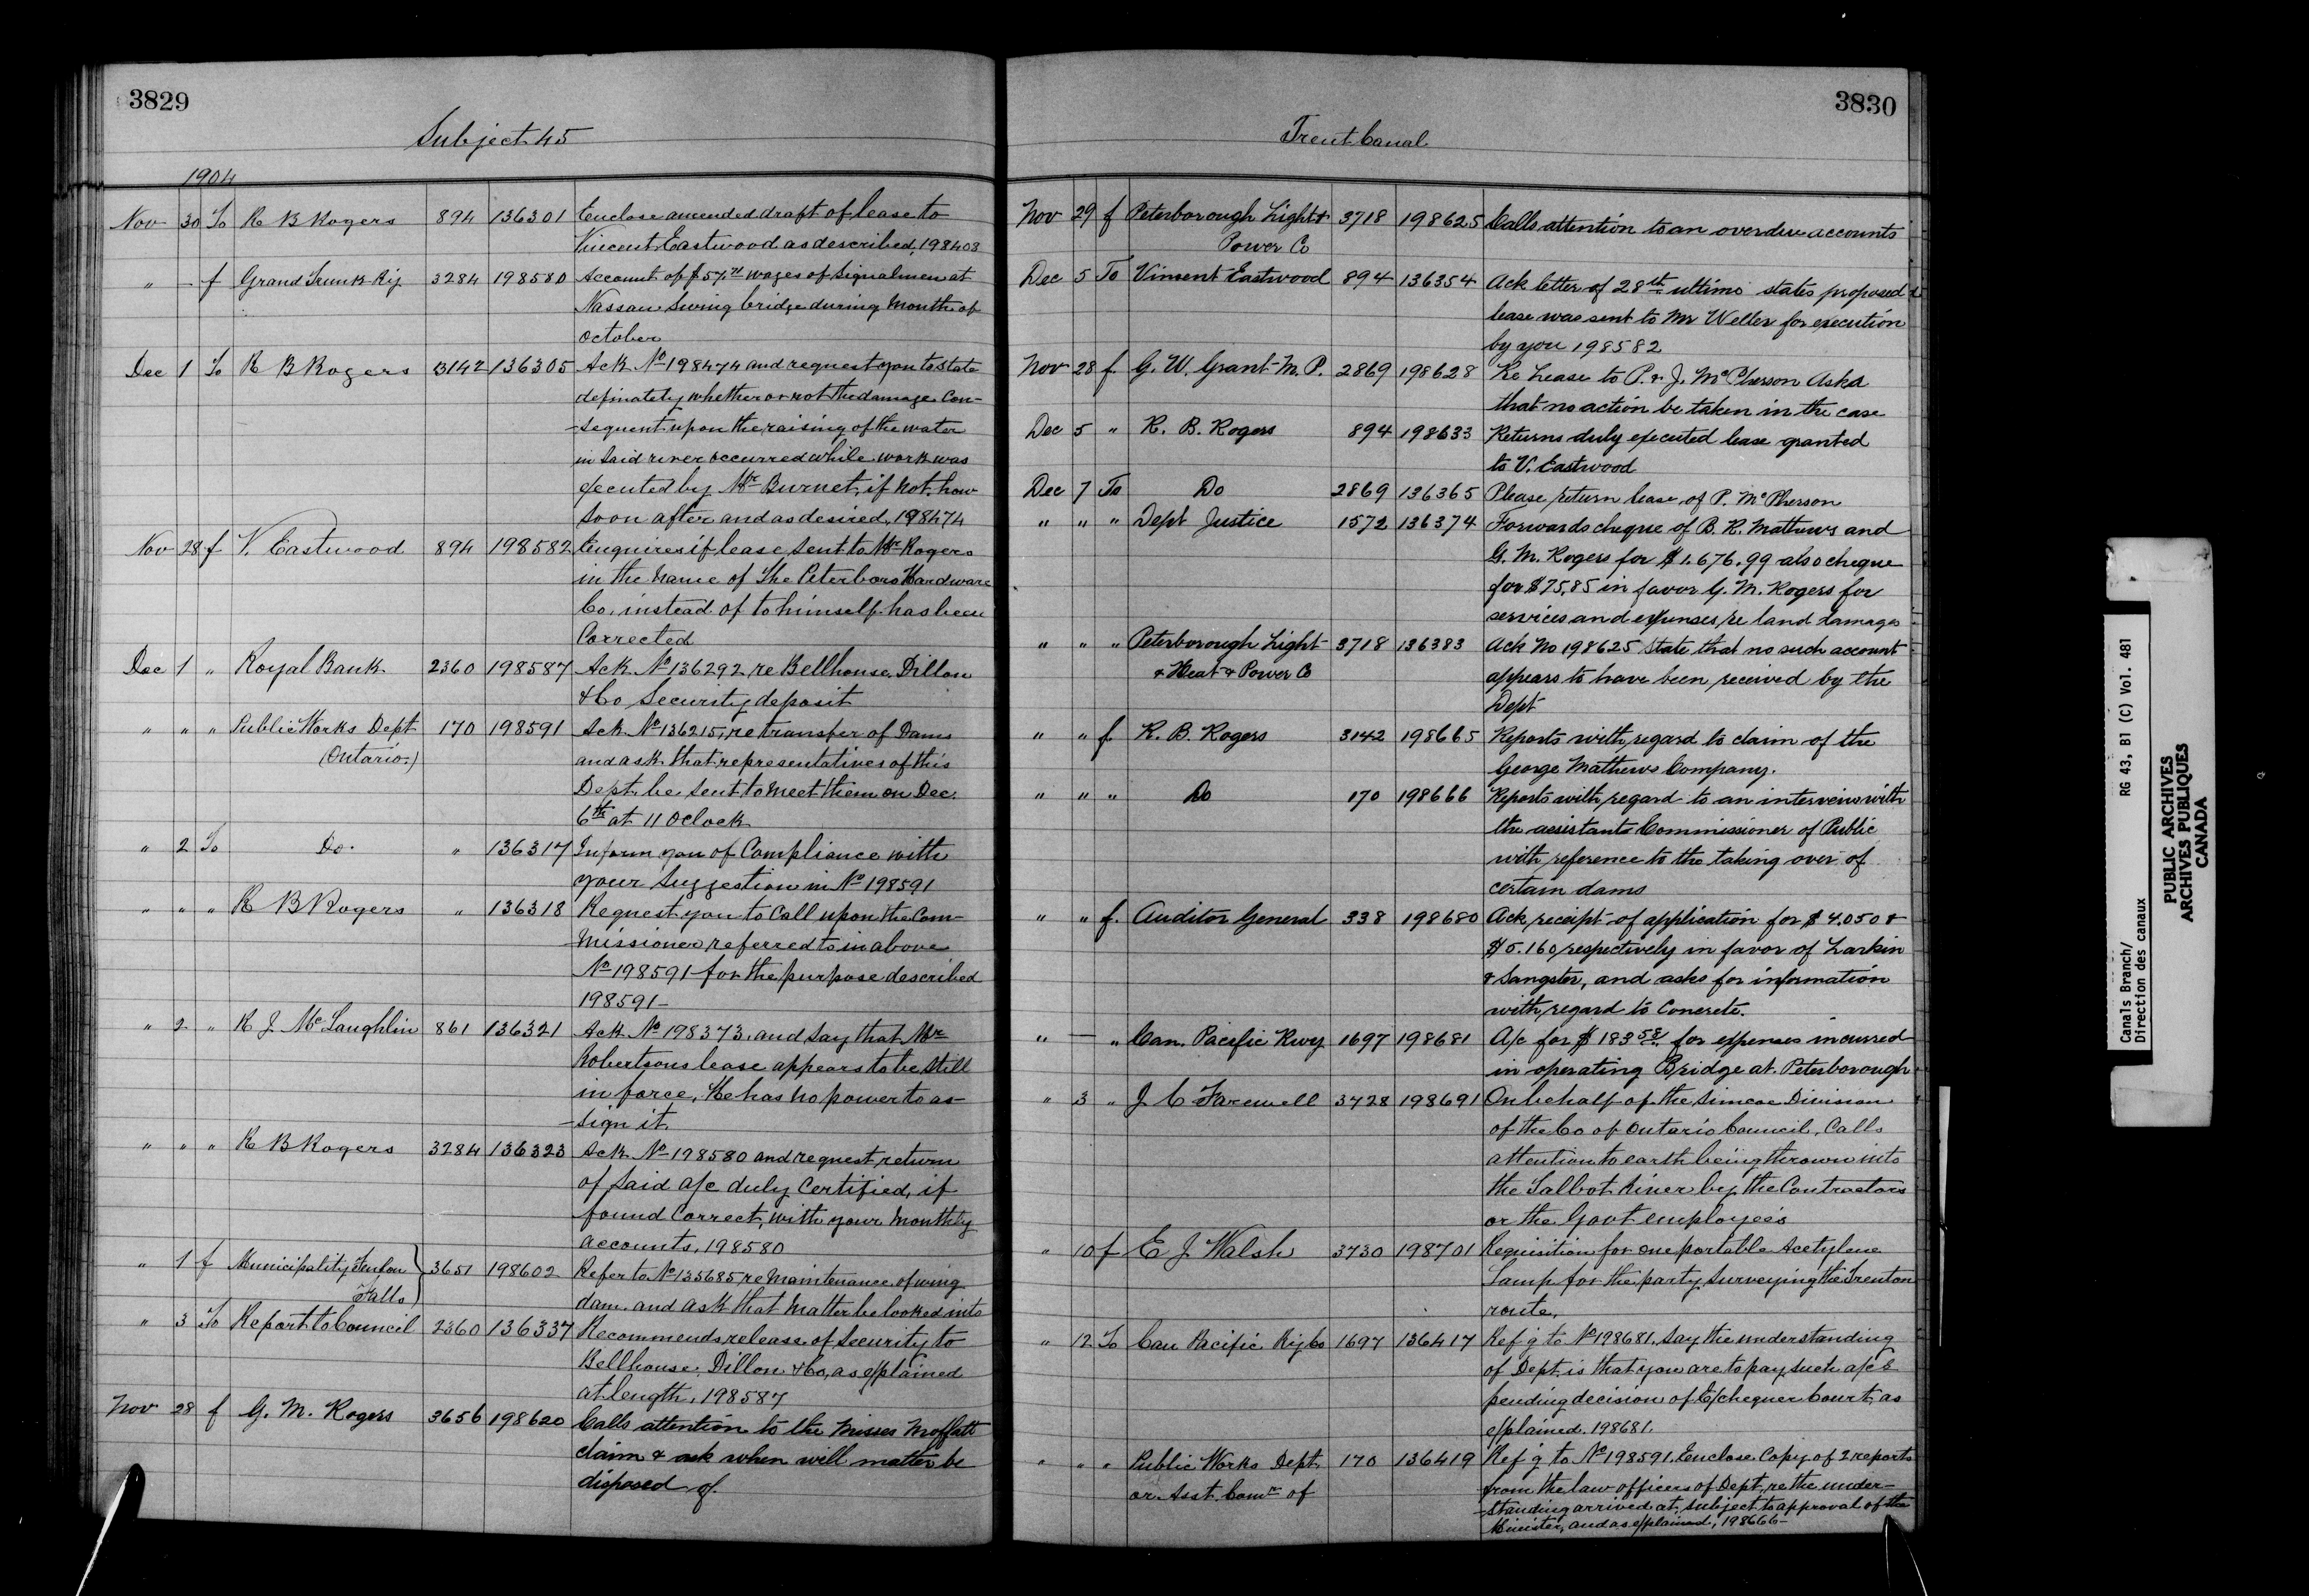 3829
Subject 45
1904
Nov 30 To R B Rogers 894 136301 Enclose amended draft of lease to
Vincent Eastwood as described, 198403
" - f Grand Trunk Ry 3284 198580 Account of wages of Signalmen at
Nassau Swing bridge during Month of
October
Dec 1 To R B Rogers 3142 136305 Ack No 198474 and request you to state
definately whether or not the damage Con-
-sequent upon the raising of the water
in said river occurred while work was
executed by Mr Burnet, if not, how
soon after and as desired, 198474
Nov 28 f V. Eastwood 894 198582 Enquires if lease sent to Mr Rogers
in the name of The Peterboro Hardware
Co. instead of to himself has been
Corrected
Dec 1 " Royal Bank 2360 198587 Ack No 136292 re Bellhouse, Dillon
& Co Security deposit
" " " Public Works Dept 170 198591 Ack No 136215, re transfer of Dams
(Ontario.) and ask that representatives of this
Dept. be sent to meet them on Dec.
6th at 11 OClock
" 2 To Do. " 136317 Inform you of Compliance with
your Suggestion in No 198591
" " " R B Rogers " 136318 Request you to Call upon the Com-
-missioner referred to in above
No 198591 for the purpose described
198591-
" 2 " R J McLaughlin 861 136321 Ack No 198373, and say that Mr
Robertsons lease appears to be still
in force, He has no power to as-
-sign it.
" " " R B Rogers 3284 136323 Ack No 198580 and request return
of said a/c duly Certified, if
found Correct, with your Monthly
accounts, 198580
" 1 f Municipality Fenlon 3651 198602 Refer to No 135685 re Maintenance of wing
Falls dam. and ask that Matter be looked into
" 3 To Report to Council 2360 136337 Recommends release of Security to
Bellhouse, Dillon & Co, as explained
at length, 198587
Nov 28 f G. M. Rogers 3656 198620 Calls attention to the Misses Moffatt
claim & ask when will matter be
disposed of.
3830
Trent Canal
Nov 29 f Peterborough Light & 3718 198625 Calls attention to an overdue accounts
Power Co
Dec 5 To Vincent Eastwood 894 136354 Ack letter of 28th ultimo states proposed
lease was sent to Mr Weller for execution
by you 198582
Nov 28 f G. W. Grant M. P. 2869 198628 Re Lease to P. & J. McPherson Asks
that no action be taken in the case
Dec 5 " R. B. Rogers 894 198633 Returns duly executed lease granted
to V. Eastwood
Dec 7 To Do 2869 136365 Please return lease of P. McPherson
" " " Dept Justice 1572 136374 Forwards cheque of B. R. Mathews and
G. M. Rogers for $1.676.99 also cheque
for $75.85 in favor G. M. Rogers for
services and expenses re land damages
" " " Peterborough Light 3718 136383 Ack No 198625 state that no such account
& Heat & Power Co appears to have been received by the
Dept
" " f R. B. Rogers 3142 198665 Reports with regard to claim of the
George Mathews Company.
" " " Do 170 198666 Reports with regard to an interview with
the assistant Commissioner of Public
with reference to the taking over of
certain dams
" " f. Auditor General 338 198680 Ack receipt of application for $4.050 &
$5.160 respectively in favor of Larkin
& Sangster, and asks for information
with regard to Concrete.
" — " Can. Pacific Rwy 1697 198681 A/c for $18358 for expenses incurred
in operating Bridge at Peterborough
" 3 " J C Farewell 3728 198691 On behalf of the Simcoe Division
of the Co of Ontario Council, Calls
attention to earth being thrown into
the Talbot River by the Contractors
or the Govt employees
" 10 f E J Walsh 3730 198701 Requisition for one portable Acetylene
Lamp for the party Surveying the Trenton
route.
" 12 To Can Pacific Ry Co 1697 136417 Ref'g to No 198681. say the understanding
of Dept. is that you are to pay such a/cs
pending decision of Exchequer Court, as
explained. 198681.
" " " Public Works Dept. 170 136419 Ref'g to No 198591. Enclose Copy of 2 reports
or Asst. Comr of from the law officers of Dept, re the under-
-standing arrived at, subject to approval of the
Minister, and as explained, 198666-
Canals Branch/
Direction des canaux
RG 43, B1 (C) Vol. 481
PUBLIC ARCHIVES
ARCHIVES PUBLIQUES
CANADA